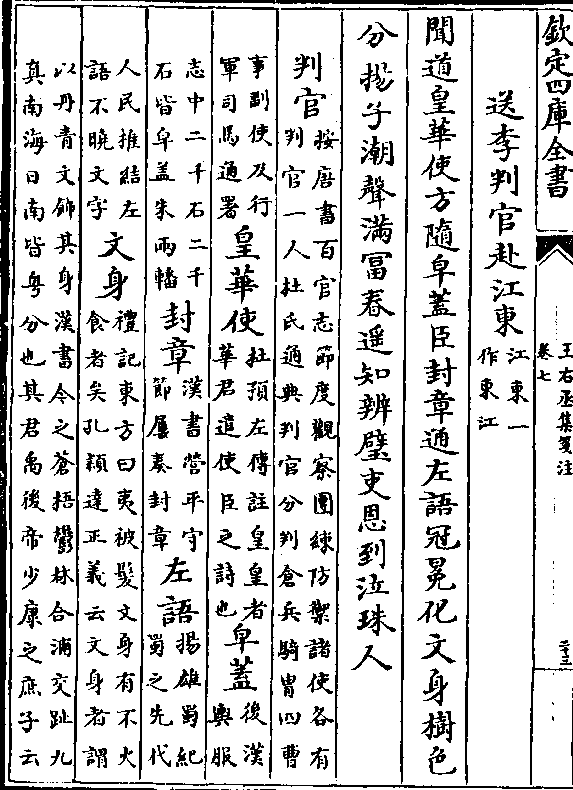 欽定四庫全書
王右丞集箋注
卷七
二十三
送李判官赴江東江東一
作東江
聞道皇華使方隨皁蓋臣封章通左語冠冕化文身樹色
分揚子潮聲滿富春遥知辨璧吏恩到泣珠人
判官按唐書百官志節度觀察團練防禦諸使各有
判官一人杜氏通典判官分判倉兵騎胄四曹
事副使及行
軍司馬通署皇華使杜預左傳註皇皇者
華君遣使臣之詩也皁蓋後漢
輿服
志中二千石二千
石皆皁蓋朱兩轓封章漢書營平守
節屢奏封章左語揚雄蜀紀
蜀之先代
人民推結左
語不曉文字文身禮記東方曰夷被髮文身有不火
食者矣孔穎達正義云文身者謂
以丹青文飾其身漢書今之蒼梧鬱林合浦交趾九
真南海日南皆粤分也其君禹後帝少康之庶子云